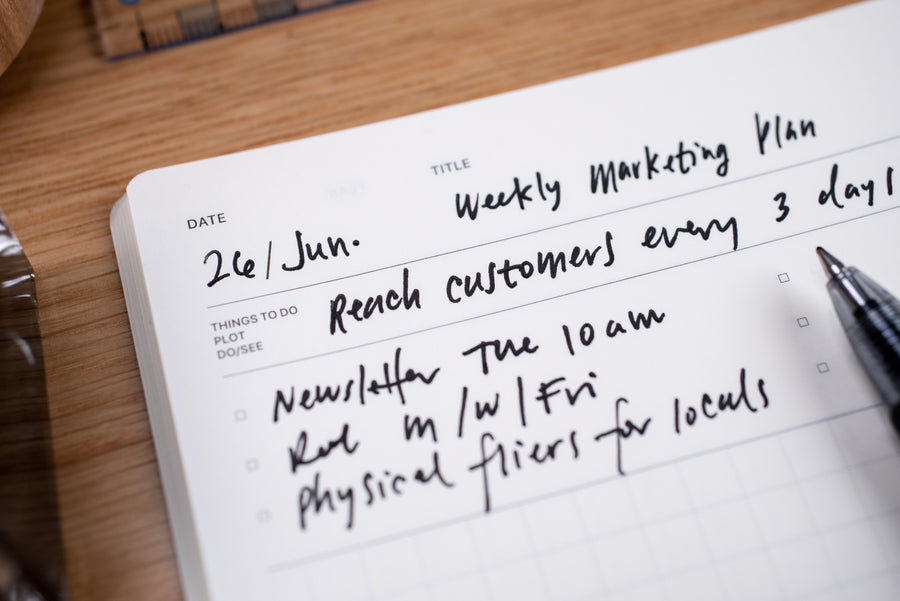 DATE
TITLE
Weekly Marketing Plan
26/Jun.
THINGS TO DO
PLOT
DO/SEE
Reach customers every 3 days
Newsletter Tue 10am
M/W/Fri
Physical fliers for locals